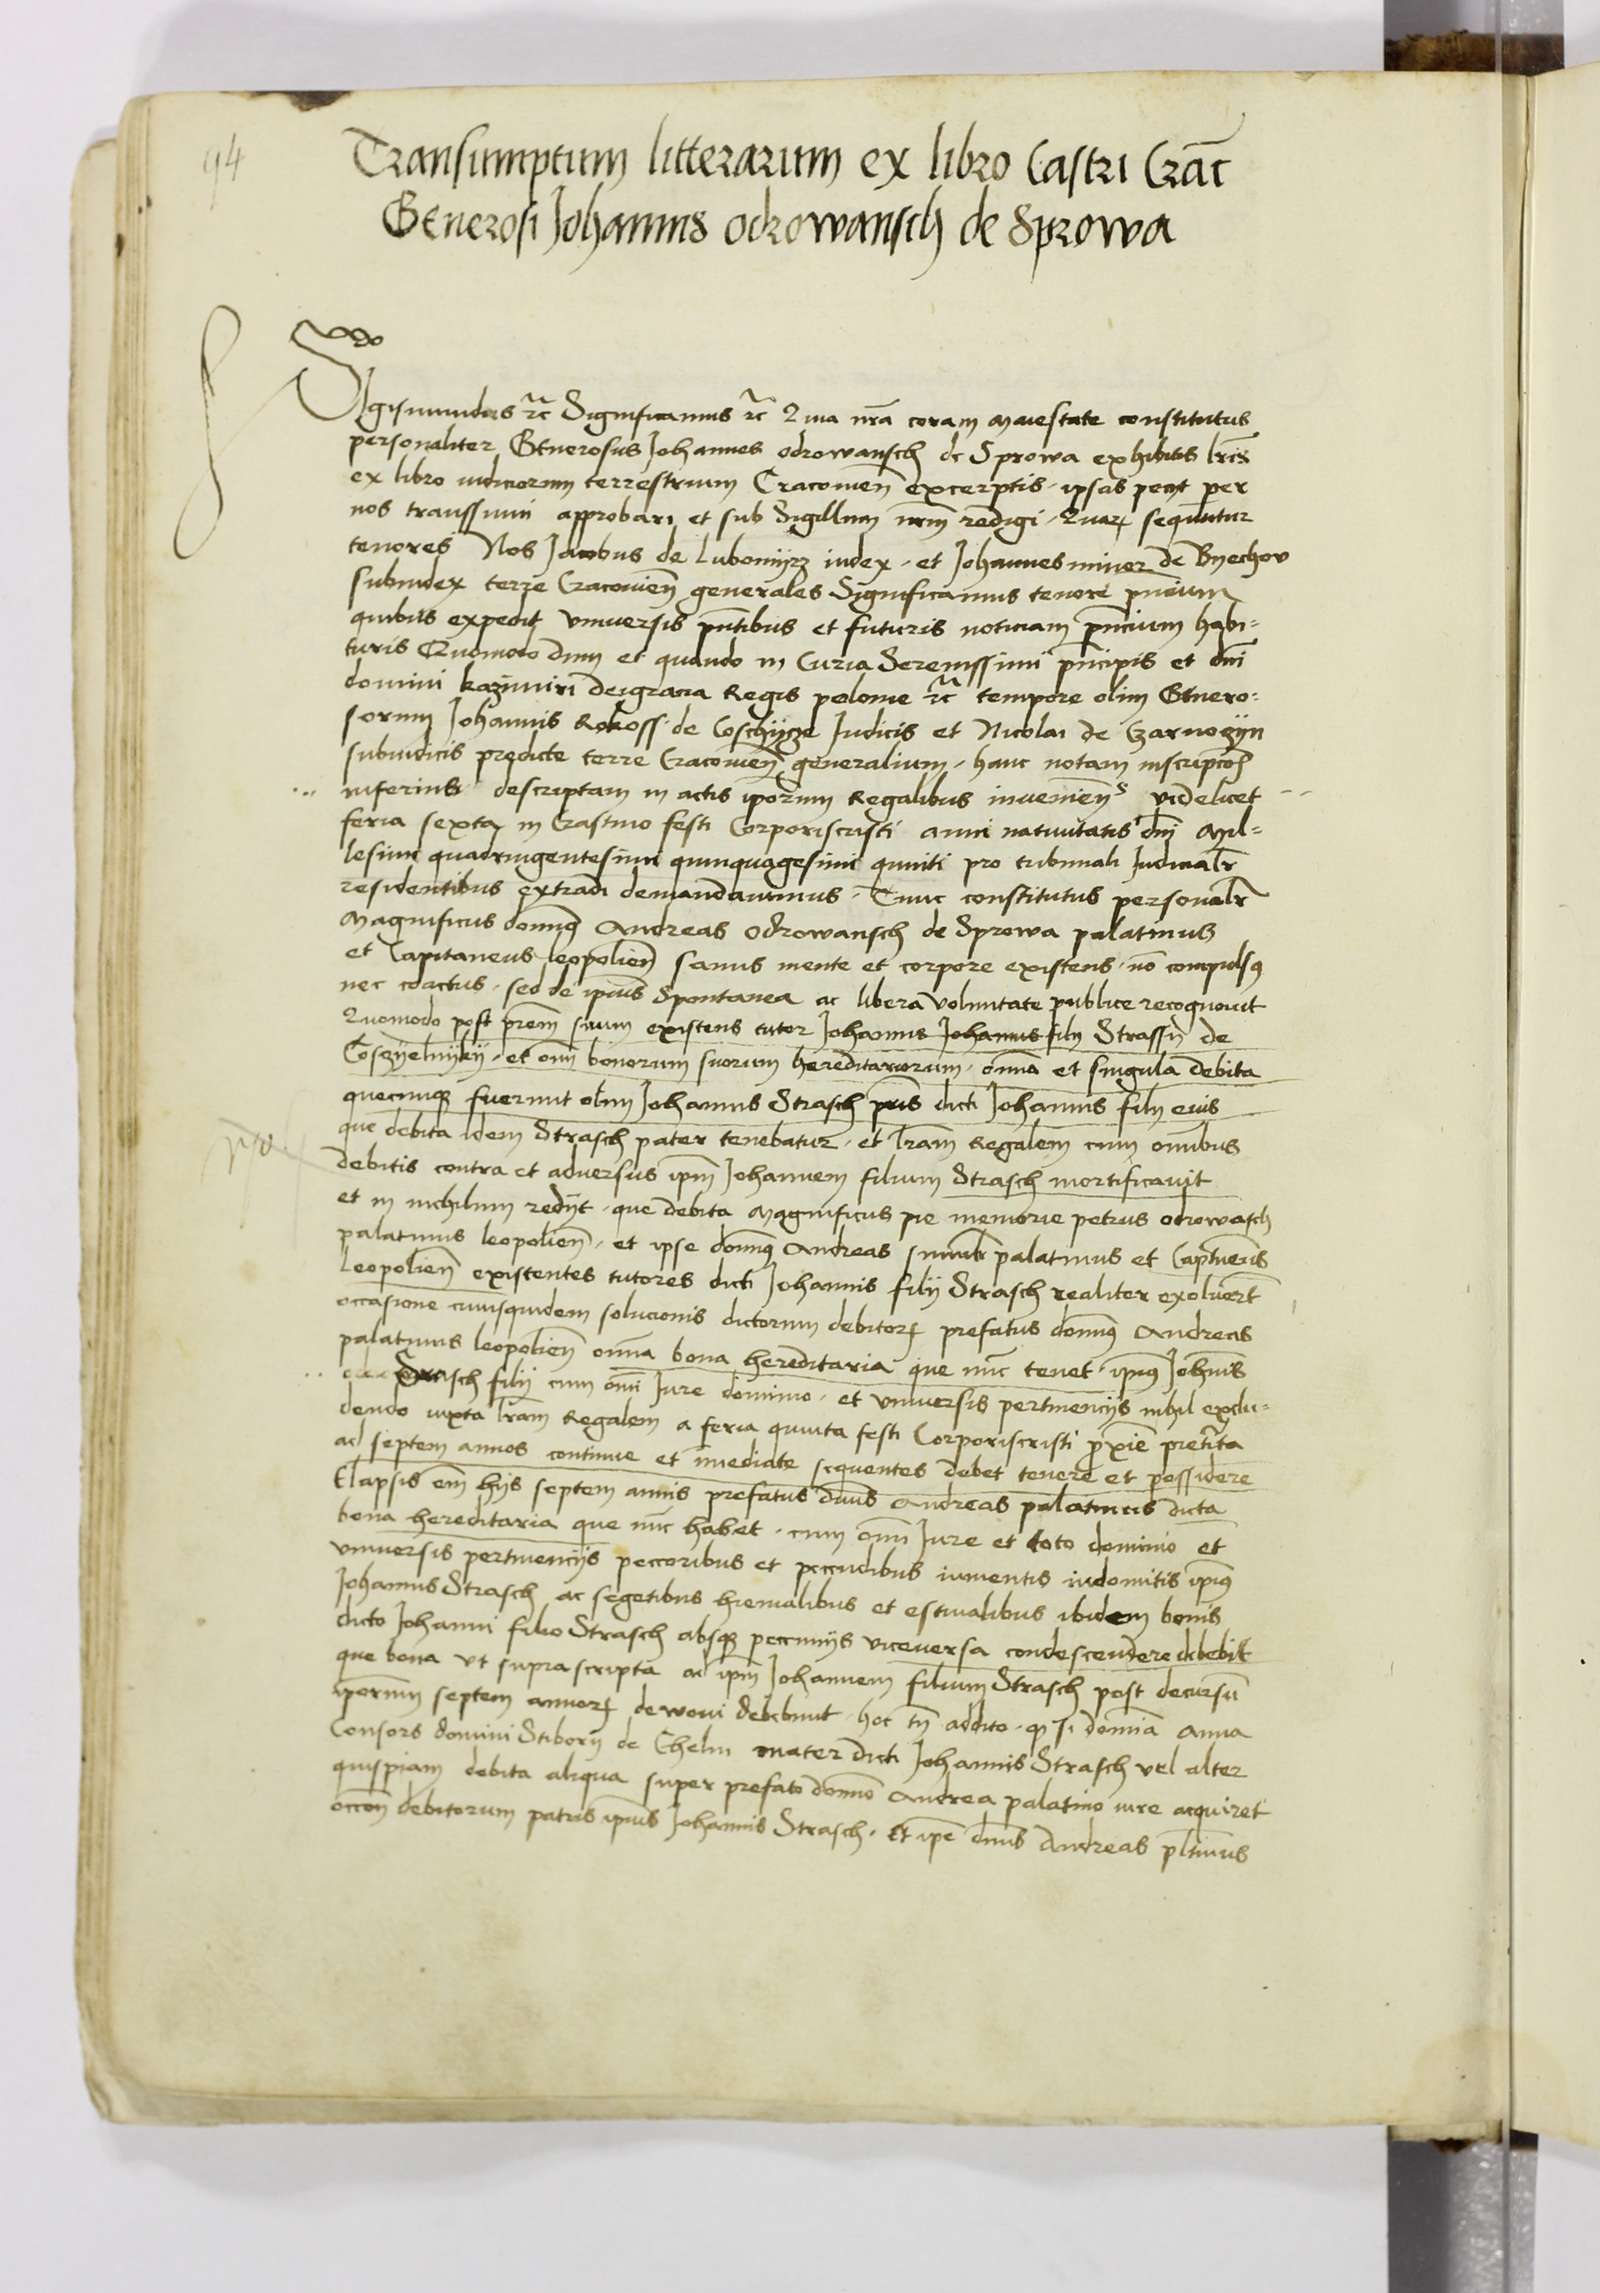 94
Transumptum litterarum ex libro Castri Crac̄
Generosi Johannis odrowansch de Sprowa
Sigismundus ꝛc̄ Significamus ꝛc̄ Quia nr̄a coram Maiestate constitutus
personaliter Generosus Johannes odrowansch de Sprowa exhibitis lr̄is
ex libro iudiciorum terrestrium Cracovien̄ excerptis · ipsas peciit per
nos transsumi approbari et sub Sigillum nr̄m redigi · Quarꝝ sequuntur
tenores Nos Jacobus de Lubomijrz iudex · et Johannes miner de Byechow
subiudex terre Cracovien̄ generales Significamus tenore pn̄cium
quibus expedit vniuersis pn̄tibus et futuris noticiam pn̄cium habi-
turis Quomodo dum et quando in Curia Serenissimi pn̄cipis et dn̄i
domini kazimiri deigracia Regis polonie ꝛc̄ tempore olim Genero-
sorum Johannis Rokoss de Coschijcze Judicis et Nicolai de Czarnozijn
subiudicis predicte terre Cracovien̄ generalium · hanc notam inscripcōēs
inferius descriptam in actis ipōrum Regalibus inuenien̄s videlicet
feria sexta in Crastino festi Corporiscristi anni natiuitatis dn̄i Mil-
lesimi quadringentesimi quinquagesimi quinti pro tribunali Judicialr̄
residentibus extradi demandauimus · Tunc constitutus personalr̄
Magnificus domnꝰ Andreas Odrowansch de Sprowa palatinus
et Capitaneus leopolien̄ sanus mente et corpore existens · nō compulsꝰ
nec coactus · sed de ipsius Spontanea ac libera voluntate publice recognouit
Quomodo post pr̄em suum existens tutor Johannis Johannis filij Strassij de
Coszijelnijkij · et om̄i bonorum suorum hereditariorum · om̄ia et singula debita
quecumqꝫ fuerunt olim Johannis Strasch pr̄is dicti Johannis filij eius
que debita idem Strasch pater tenebatur · et lr̄am Regalem cum omnibus
debitis contra et aduersus ip̄m Johannem filium Strasch mortificauit
et in nichilum redijt · que debita Magnificus pie memorie petrus odrowasch
palatinus leopolien̄ · et ipse domnꝰ Andreas similr̄ palatinus et Captneus
Leopolien̄ existentes tutores dicti Johannis filij Strasch realiter exoluerūt
occasione cuiusquidem solucionis dictorum debitorꝝ prefatus domnꝰ Andreas
palatinus leopolien̄ om̄ia bona hereditaria que nūc tenet · ipiꝰ Joh̄nis
Strasch filij cum om̄i Jure dominio · et vniuersis pertinencijs nihil exclu-
dendo iuxta lr̄am Regalem a feria quinta festi Corporiscristi prōxie preterita
ad septem annos continue et īmediate sequentes debet tenere et possidere
Elapsis em̄ hijs septem annis prefatus dn̄us Andreas palatinus dicta
bona hereditaria que nūc habet · cum om̄i Jure et toto dominio et
vniuersis pertinencijs peccoribus et peccudibus iumentis indomitis ipiꝰ
Johannis Strasch ac segetibus hiemalibus et estiualibus ibidem bonis
dicto Johanni filio Strasch absqꝫ peccunijs viceuersa condescendere debebit
que bona vt suprascripta ad ip̄m Johannem filium Strasch post decursū
ipōrum septem annorꝝ devolui debebunt · hoc tn̄ addito · qꝫ si domīa Anna
Consors domini Stiborij de Chelm mater dicti Johannis Strasch vel alter
quispiam debita aliqua super prefato domno Andrea palatino iure acquiret
occon̄ debitorum patris ipius Johannis Strasch · Et ip̄e dn̄us Andreas pl̄tinus